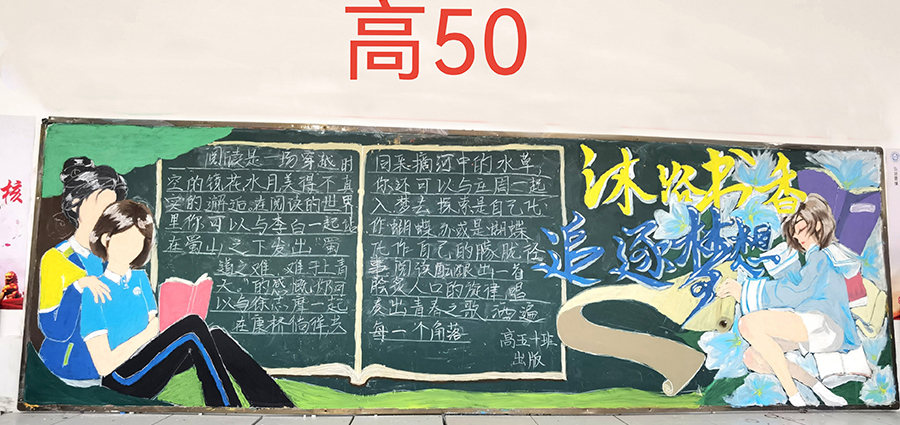 高50
核
阅读是一场穿越时
空的镜花水月美得不真
实的邂逅.在阅读的世界
里你可以与李白一起站
在蜀山之下发出"蜀
道之难、难于上青
天"的感慨.你可
以与徐志摩一起
在康桥徜徉去
回来摘河中的水草,
你还可以与庄周一起
入梦去探索是自己化
作蝴蝶亦或是蝴蝶
化作自己的朦胧
阅读酝酿出一首
脍炙人口的旋律,唱
奏出青春之歌,洒遍
每一个角落
高五十班
出版
沐浴书香
追逐梦想